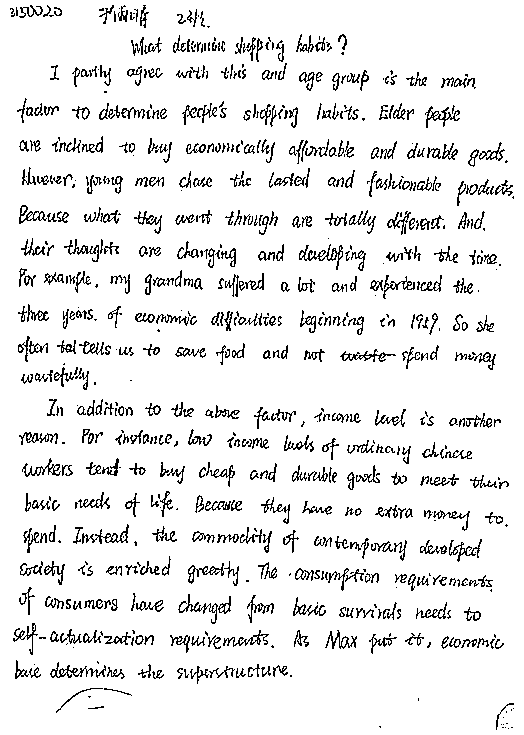 3150020
What determine shopping habits?
I partly agree with this and age group is the main
factor to determine people's shopping habits. Elder people
are inclined to buy economically affordable and durable goods.
However, young men chase the lasted and fashionable products.
Because what they went through are totally different. And.
their thoughts are changing and developing with the time.
For example, my grandma suffered a lot and experienced the
three years. of economic difficulties beginning in 1959. So she
often tells us to save food and not waste spend money
wastefully.
In addition to the above factor, income level is another
reason. For instance, low income levels of ordinary chinese
workers tend to buy cheap and durable goods to meet their
basic needs of life. Because they have no extra money to.
spend. Instead, the commodity of contemporary developed
society is enriched greetly. The consumption requirements
of consumers have changed from basic survivals needs to
self-actualization requirements. As Max put it, economic
base determines the superstructure.